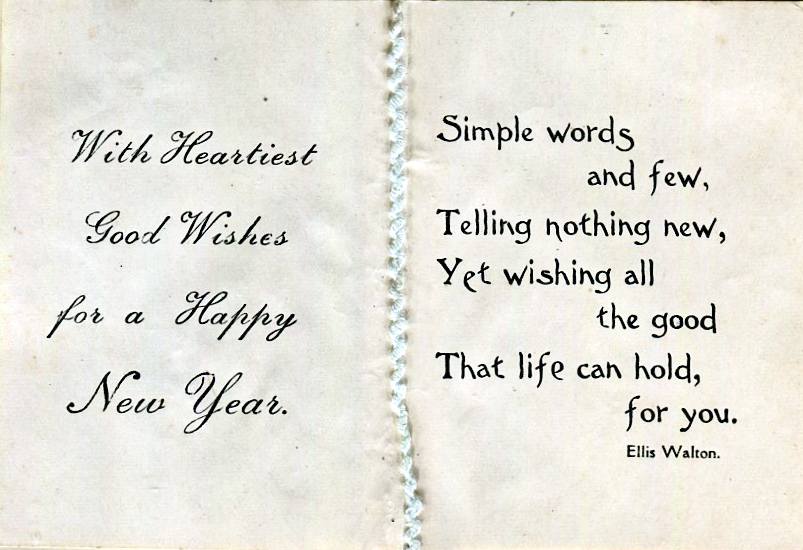 With Heartiest
Good Wishes
for a Happy
New Year.
Simple words
and few,
Telling nothing new,
Yet wishing all
the good
That life can hold,
for you.
Ellis Walton.